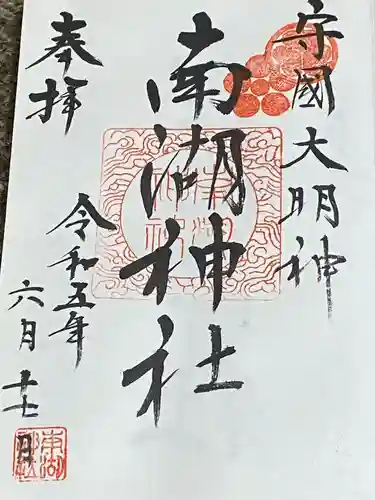 守國大明神
南湖神社
奉拝
令和五年
六月十七日
南湖